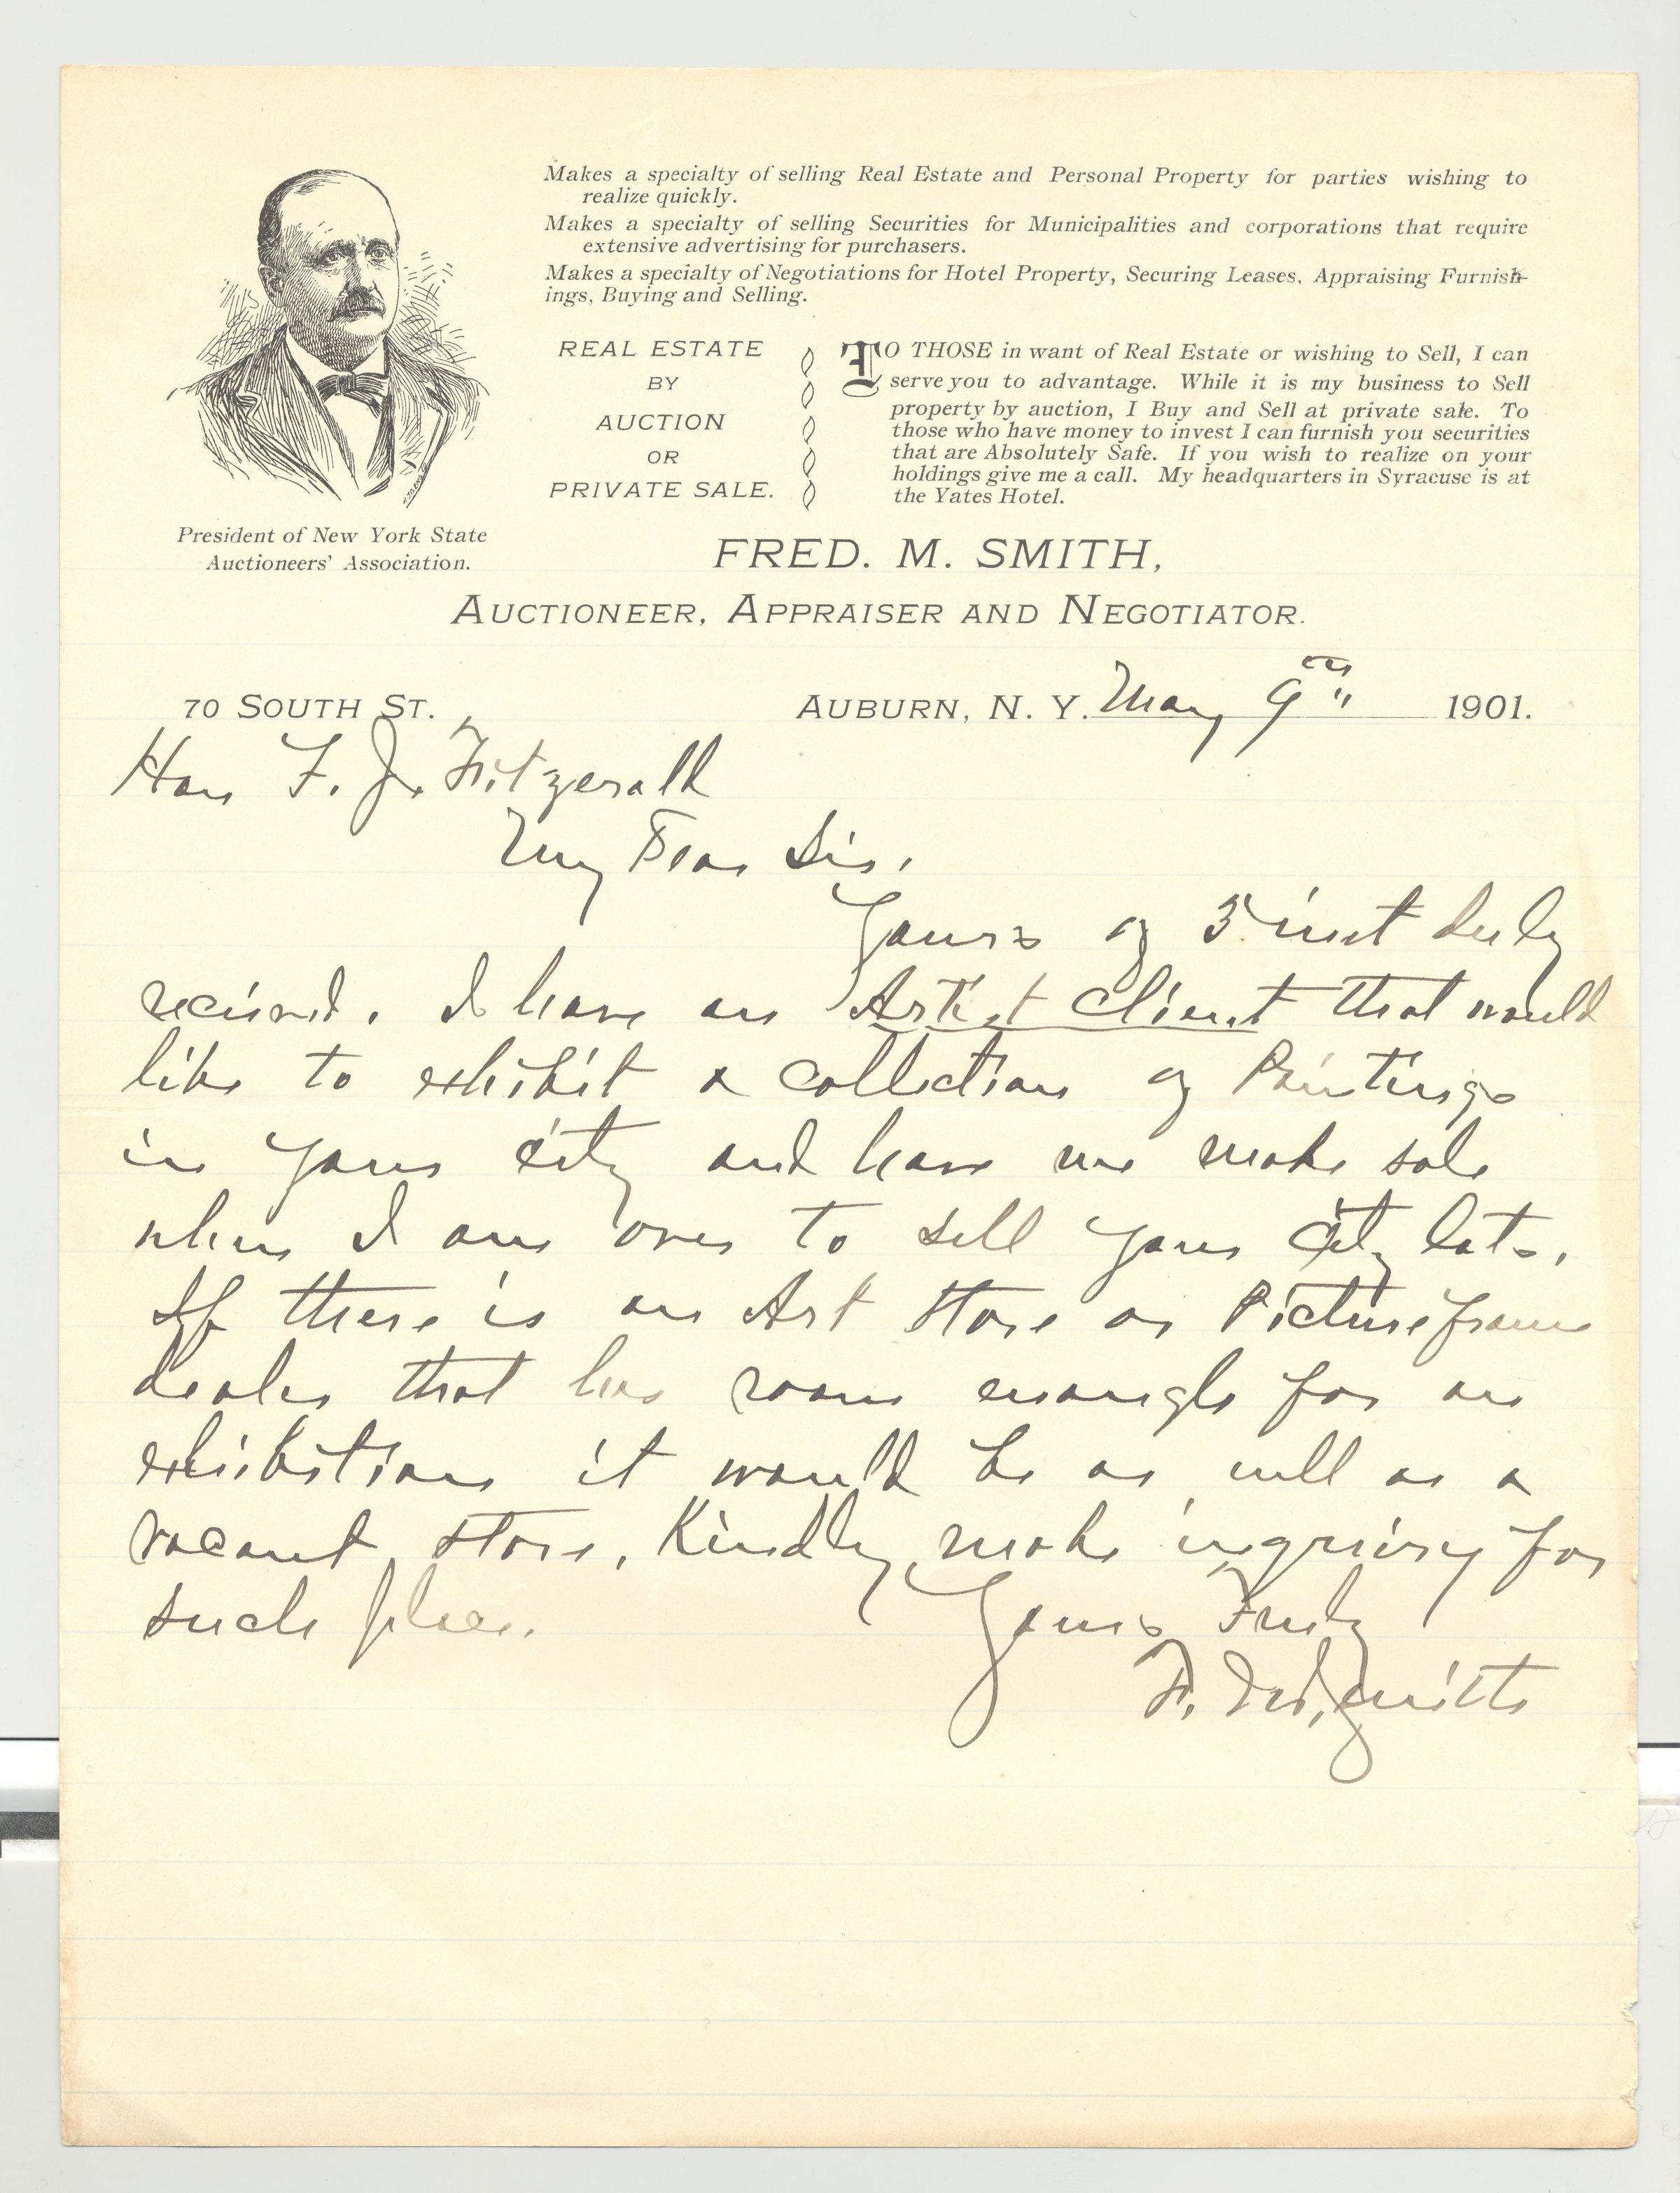 Makes a specialty of selling Real Estate and Personal Property for parties wishing to
realize quickly.
Makes a specialty of selling Securities for Municipalities and corporations that require
extensive advertising for purchasers.
Makes a specialty of Negotiations for Hotel Property, Securing Leases, Appraising Furnish-
ings, Buying and Selling.
REAL ESTATE
BY
AUCTION
OR
PRIVATE SALE.
TO THOSE in want of Real Estate or wishing to Sell, I can
serve you to advantage. While it is my business to Sell
property by auction, I Buy and Sell at private sale. To
those who have money to invest I can furnish you securities
that are Absolutely Safe. If you wish to realize on your
holdings give me a call. My headquarters in Syracuse is at
the Yates Hotel.
President of New York State
Auctioneers' Association.
FRED. M. SMITH,
AUCTIONEER, APPRAISER AND NEGOTIATOR.
70 SOUTH ST. AUBURN, N. Y. May 9th 1901.
Hon F. J. Fitzgerald
My Dear Sir,
Yours of 3 inst duly
recieved. I have an Artist Client that would
like to exhibit a collection of Paintings
in your city and have me make sale
when I am over to sell your city lots.
If there is an Art Store or Picture frame
dealer that has room enough for an
exhibition it would be as well as a
vacant store. Kindly make inquiry for
such place.
Yours Truly
F. M. Smith